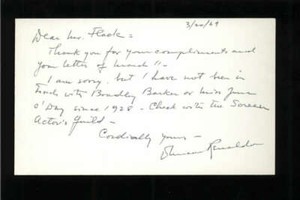 3/20/69
Dear Mr. Fleck =
Thank you for your compliments and
your letter of March 11 -
I am sorry but I have not been in
touch with Bradley Barker or Miss June
O'Day since 1928 - Check with the Screen
Actor's Guild -
Cordially yours -
Duncan Renaldo